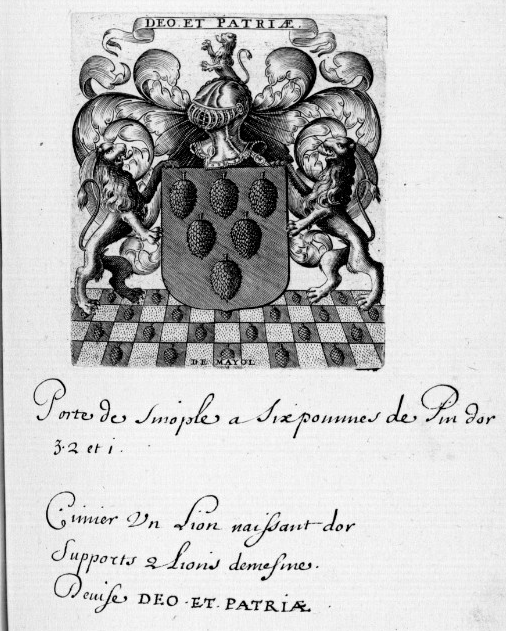 DEO·ET PATRIÆ.
DE MAYOL
Porte de sinople a six pommes de Pin dor
3·2 et 1·
Cimier Vn Lion naissant dor
Supports 2 Lions demesme·
Deuise DEO·ET·PATRIÆ